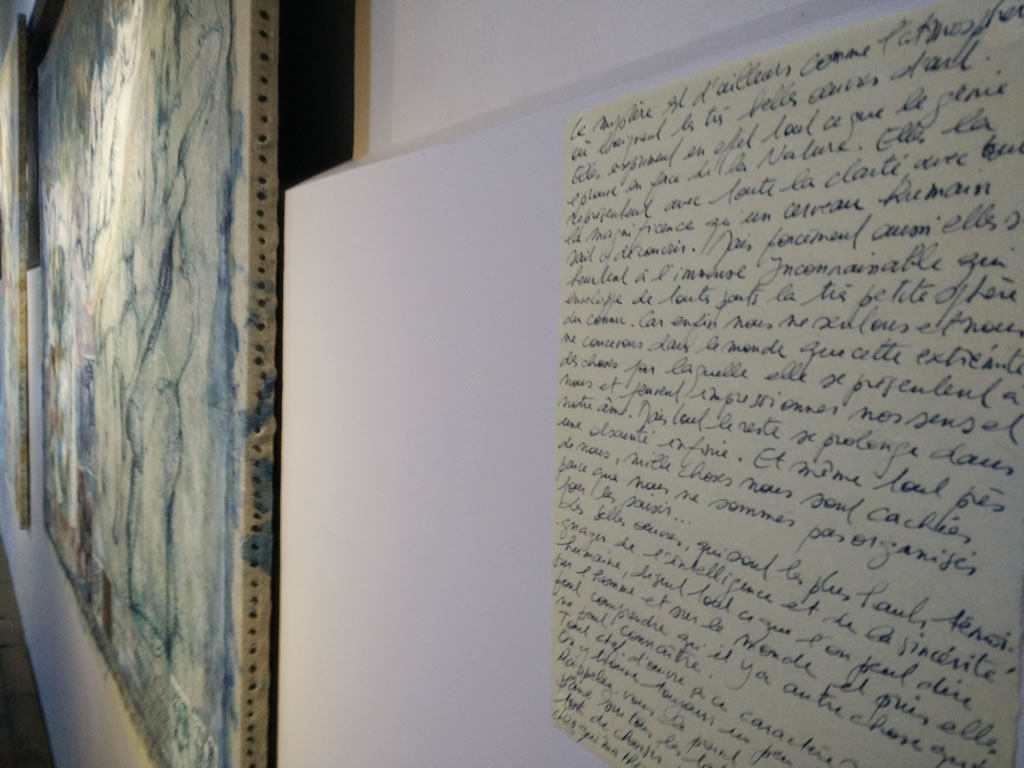 Le mystère est d'ailleurs comme l'atmosphère
où baignent les très belles œuvres d'art.
Elles expriment en effet tout ce que le génie
éprouve en face de la Nature. Elles la
représentent avec toute la clarté, avec toute
la magnificence qu'un cerveau humain
sait y découvrir. Mais forcément aussi elles se
heurtent à l'immense Inconnaissable qui
enveloppe de toutes parts la très petite sphère
du connu. Car enfin nous ne sentons et nous
ne concevons dans le monde que cette extrémité
des choses par laquelle elle se présentent à
nous et peuvent impressionner nos sens et
notre âme. Mais tout le reste se prolonge dans
une obscurité infinie. Et même tout près
de nous, mille choses nous sont cachées
parce que nous ne sommes pas organisés
pour les saisir...
Les belles œuvres, qui sont les plus hauts témoi-
gnages de l'intelligence et de la sincérité
humaine, disent tout ce que l'on peut dire
sur l'homme et sur le monde et puis elles
font comprendre qu'il y a autre chose qu'on
ne peut connaître.
Tout chef d'œuvre a ce caractère
On y trouve toujours un peu
Rappelez-vous le point
plane sur tous les